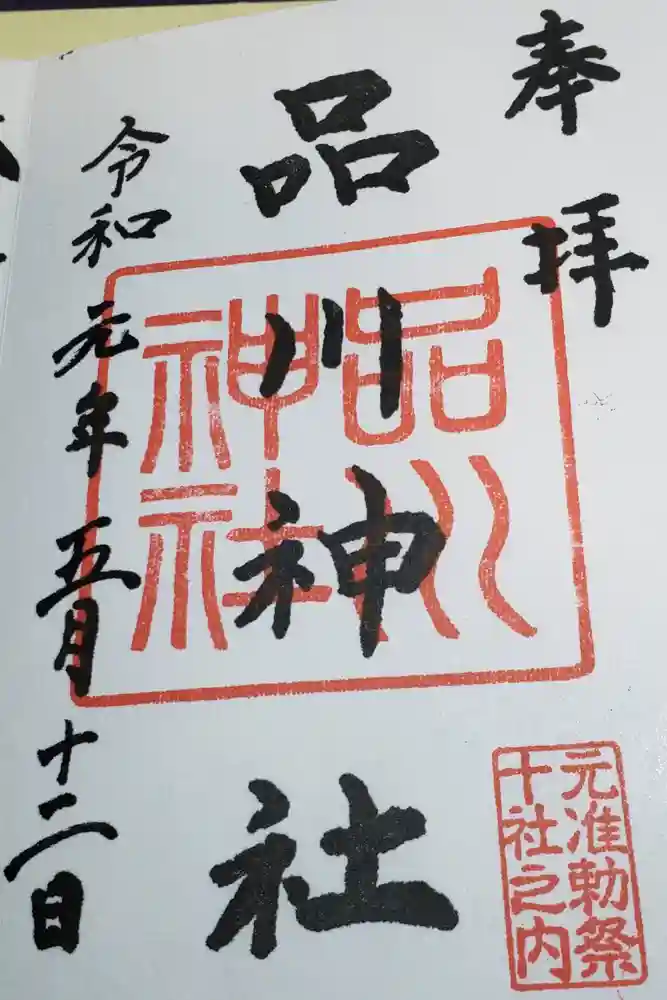 奉拝
品川神社
品川
神社
元准勅祭
十社之内
令和元年五月十二日